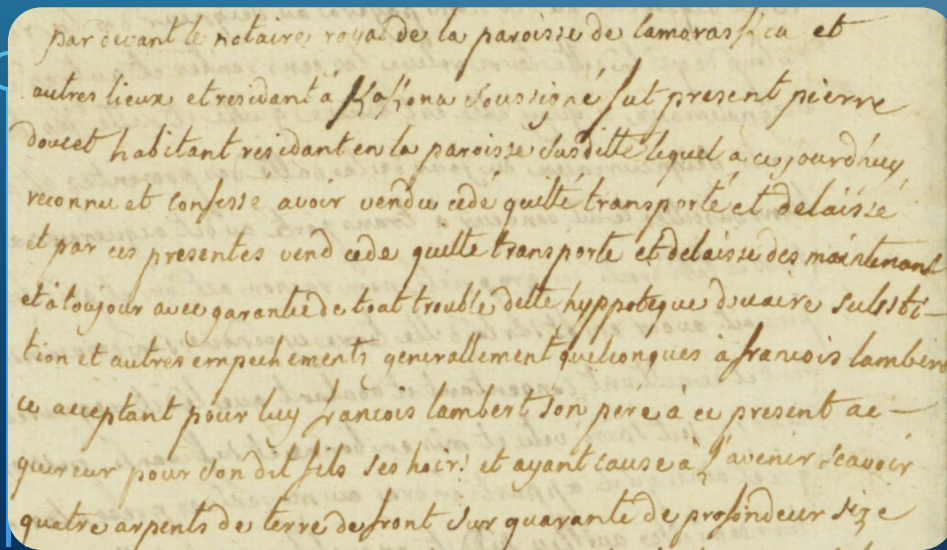 par devant le notaire royal de la paroisse de lamoraska et
autres lieux et residant à soussigné fut present pierre
doucet habitant residant en la paroisse susditte lequel a ce jourd'huy
reconnu et confesse avoir vendu cédé quitté transporté et délaissé
et par ces presentes vend cede quitte transporte et delaisse dès maintenant
et à toujour avec garantie de tout trouble dette hyppoteque douaire substi-
tion et autres empechements generallement quelconques à francois lambert
ce acceptant pour luy francois lambert son pere à ce present ac-
quereur pour son dit fils ses hoirs et ayant cause à l'avenir scavoir
quatre arpents de terre de front sur quarante de profondeur size